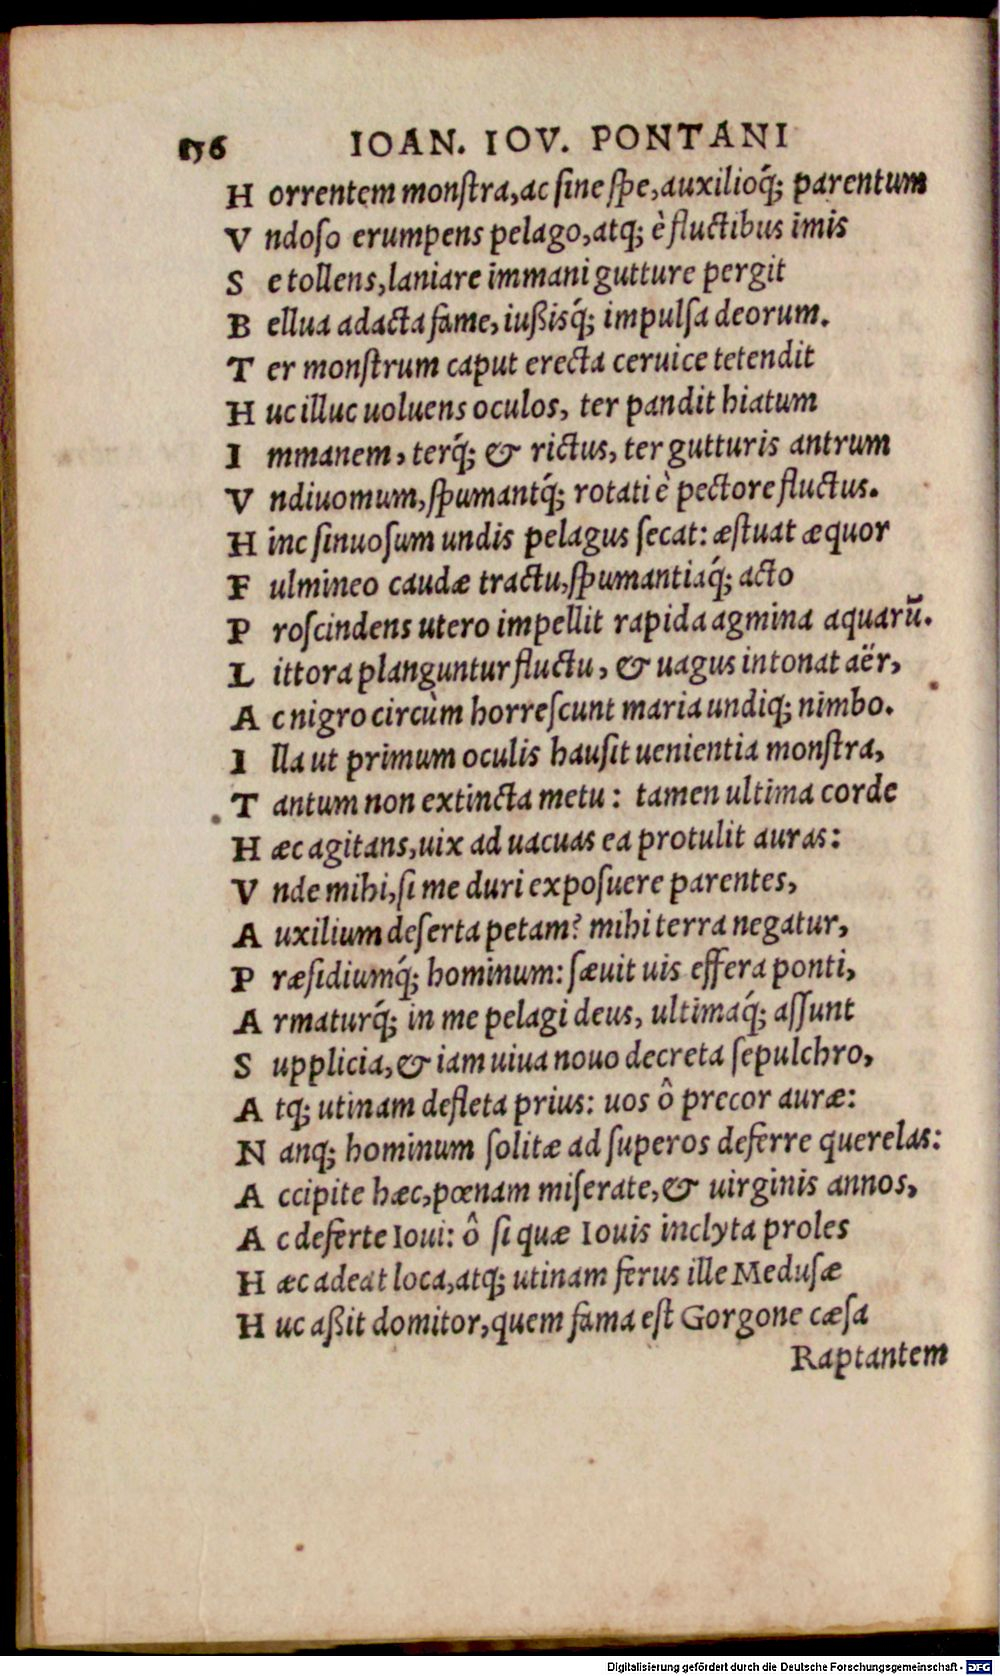 156 IOAN. IOV. PONTANI
H orrentem monſtra, ac ſine ſpe, auxilioq́; parentum
V ndoſo erumpens pelago, atq; è fluctibus imis
S e tollens, laniare immani gutture pergit
B ellua adacta fame, iußisq́; impulſa deorum.
T er monſtrum caput erecta ceruice tetendit
H uc illuc uoluens oculos, ter pandit hiatum
I mmanem, terq́; & rictus, ter gutturis antrum
V ndiuomum, ſpumantq́; rotati è pectore fluctus.
H inc ſinuoſum undis pelagus ſecat: æſtuat æquor
F ulmineo caudæ tractu, ſpumantiaq́; acto
P roſcindens utero impellit rapida agmina aquarũ.
L ittora planguntur fluctu, & uagus intonat aër,
A c nigro circùm horreſcunt maria undiq; nimbo.
I lla ut primum oculis hauſit uenientia monſtra,
T antum non extincta metu: tamen ultima corde
H æc agitans, uix ad uacuas ea protulit auras:
V nde mihi, ſi me duri expoſuere parentes,
A uxilium deſerta petam? mihi terra negatur,
P ræſidiumq́; hominum: ſæuit uis effera ponti,
A rmaturq́; in me pelagi deus, ultimaq́; aſſunt
S upplicia, & iam uiua nouo decreta ſepulchro,
A tq; utinam defleta prius: uos ô precor auræ:
N anq; hominum ſolitæ ad ſuperos deferre querelas:
A ccipite hæc, pœnam miſerate, & uirginis annos,
A c deferte Ioui: ô ſi quæ Iouis inclyta proles
H æc adeat loca, atq; utinam ferus ille Meduſæ
H uc aßit domitor, quem fama eſt Gorgone cæſa
Raptantem
Digitalisierung gefördert durch die Deutsche Forschungsgemeinschaft - DFG